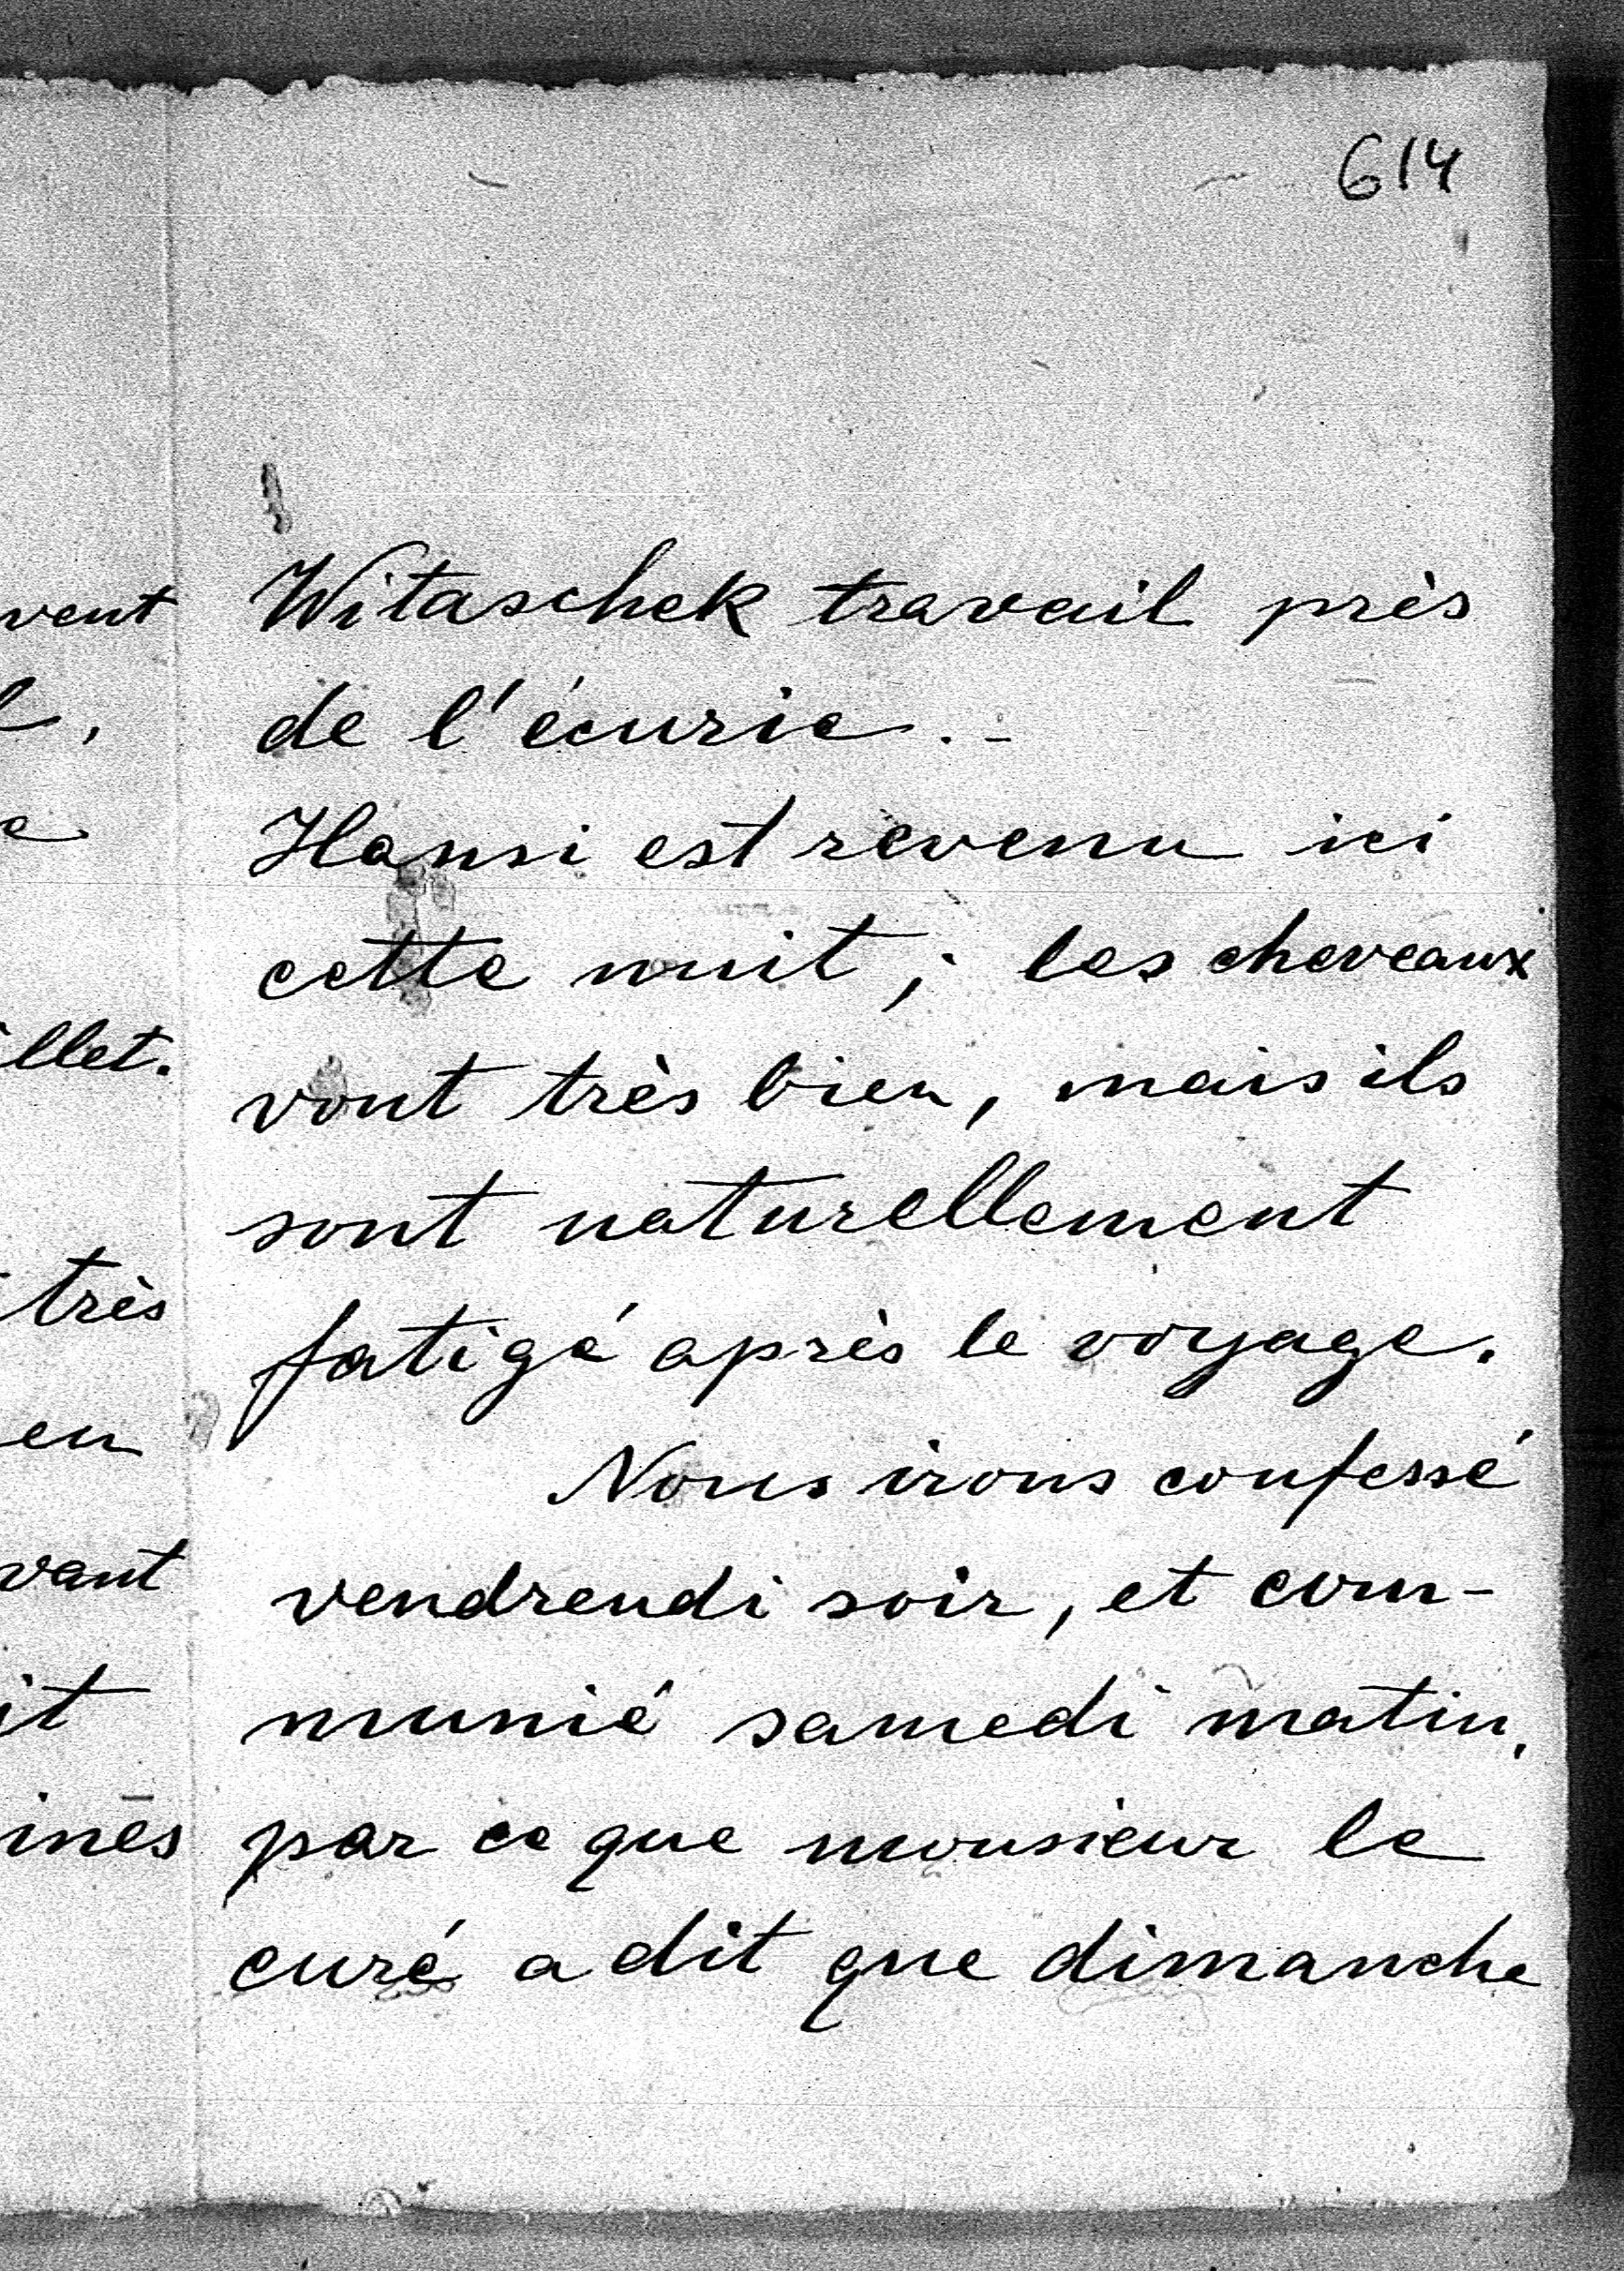 614
vent
,
e
illet.
très
en
vant
it
inēs
Witaschek travail près
de l'écurie. -
Hansi est revenu ici
cette nuit ; les cheveaux
vont très bien, mais ils
sont naturellement
fatigé après le voyage.
Nous irons confessé
vendrendi soir, et com-
munié samedi matin,
par ce que monsieur le
curé a dit que dimanche